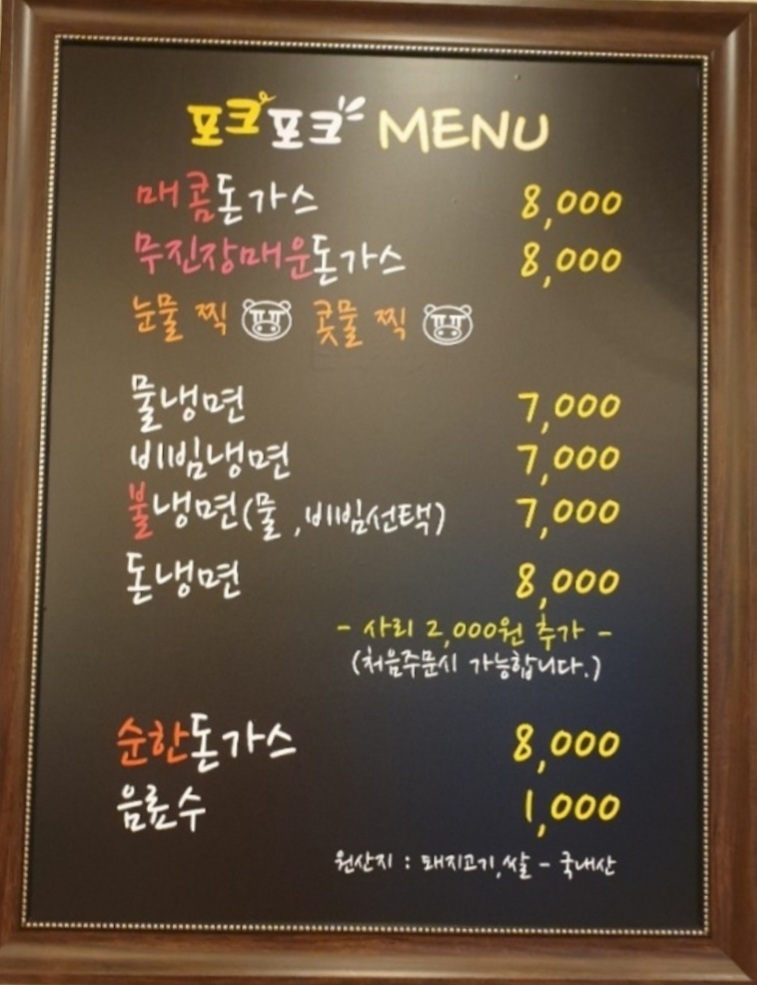 포크포크 MENU
매콤돈가스 8,000
무진장매운돈가스 8,000
눈물 찍 콧물 찍
물냉면 7,000
비빔냉면 7,000
불냉면(물,비빔선택) 7,000
돈냉면 8,000
- 사리 2,000원 추가 -
(처음주문시 가능합니다.)
순한돈가스 8,000
음료수 1,000
원산지 : 돼지고기,쌀 - 국내산